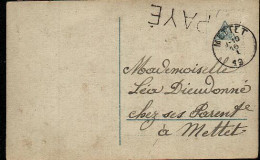 PAYÉ
METTET
19
Mademoiselle
Léa Dieudonné
chez ses Parents
à Mettet